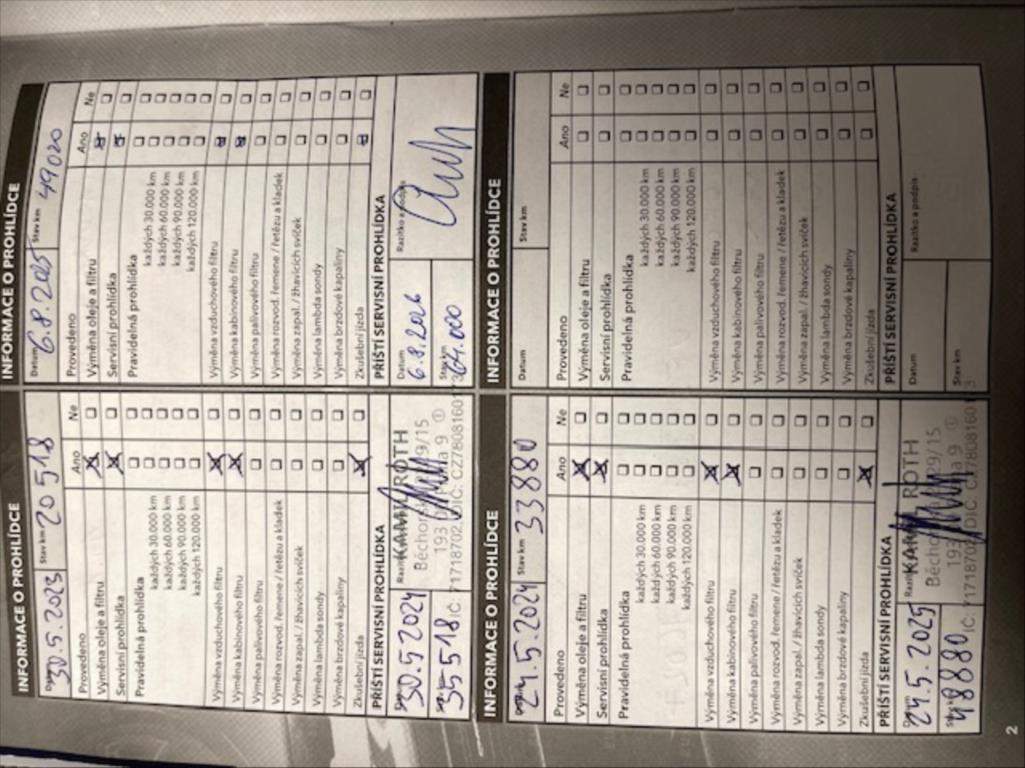 INFORMACE O PROHLÍDCE
Datum Stav km
30.5.2023 20 518
Provedeno Ano Ne
Výměna oleje a filtru
Servisní prohlídka
Pravidelná prohlídka
každých 30.000 km
každých 60.000 km
každých 90.000 km
každých 120.000 km
Výměna vzduchového filtru
Výměna kabinového filtru
Výměna palivového filtru
Výměna rozvod. řemene / řetězu a kladek
Výměna zapal. / žhavicích svíček
Výměna lambda sondy
Výměna brzdové kapaliny
Zkušební jízda
PŘÍŠTÍ SERVISNÍ PROHLÍDKA
30.5.2024
35518
ROTH
INFORMACE O PROHLÍDCE
Stav km
24.5.2024 33880
Provedeno Ano Ne
Výměna oleje a filtru
Servisní prohlídka
Pravidelná prohlídka
každých 30.000 km
každých 60.000 km
každých 90.000 km
každých 120.000 km
Výměna vzduchového filtru
Výměna kabinového filtru
Výměna palivového filtru
Výměna rozvod. řemene / řetězu a kladek
Výměna zapal. / žhavicích svíček
Výměna lambda sondy
Výměna brzdové kapaliny
Zkušební jízda
PŘÍŠTÍ SERVISNÍ PROHLÍDKA
24.5.2025
48880
ROTH
INFORMACE O PROHLÍDCE
Datum Stav km
6.8.2025 49020
Provedeno Ano Ne
Výměna oleje a filtru
Servisní prohlídka
Pravidelná prohlídka
každých 30.000 km
každých 60.000 km
každých 90.000 km
každých 120.000 km
Výměna vzduchového filtru
Výměna kabinového filtru
Výměna palivového filtru
Výměna rozvod. řemene / řetězu a kladek
Výměna zapal. / žhavicích svíček
Výměna lambda sondy
Výměna brzdové kapaliny
Zkušební jízda
PŘÍŠTÍ SERVISNÍ PROHLÍDKA
Datum Razítko a podpis
6.8.2026
Stav km
64.000
INFORMACE O PROHLÍDCE
Datum Stav km
Provedeno Ano Ne
Výměna oleje a filtru
Servisní prohlídka
Pravidelná prohlídka
každých 30.000 km
každých 60.000 km
každých 90.000 km
každých 120.000 km
Výměna vzduchového filtru
Výměna kabinového filtru
Výměna palivového filtru
Výměna rozvod. řemene / řetězu a kladek
Výměna zapal. / žhavicích svíček
Výměna lambda sondy
Výměna brzdové kapaliny
Zkušební jízda
PŘÍŠTÍ SERVISNÍ PROHLÍDKA
Datum Razítko a podpis
Stav km
2